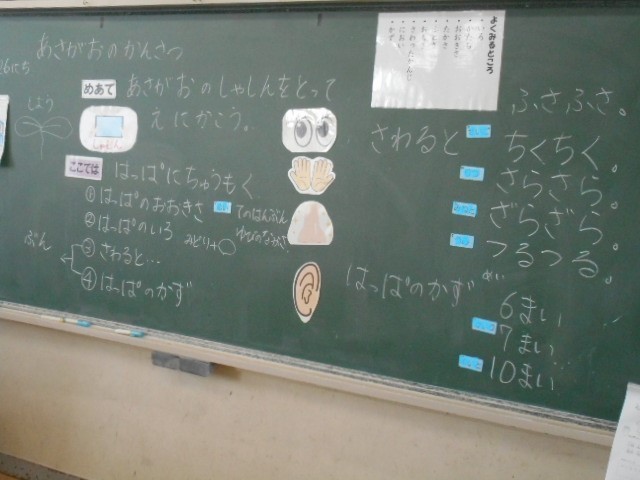 あさがおのかんさつ
26にち
めあて
あさがおのしゃしんをとって
えにかこう。
しよう
ここでは
はっぱにちゅうもく
①はっぱのおおきさ
てのはんぶん
ゆびのながさ
②はっぱのいろ
みどり+
③さわると…
④はっぱのかず
ぶん
よくみるところ
いろ
かたち
おおきさ
たかさ
さわったかんじ
におい
かず
さわると
ふさふさ。
ちくちく。
さらさら。
ざらざら。
つるつる。
はっぱのかず
6まい
7まい
10まい